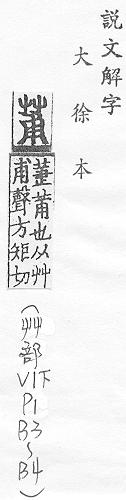 説文解字
大徐本
莆
萐莆也从艸
甫聲方矩切
(艸部
V1下
P1
B3~
B4)